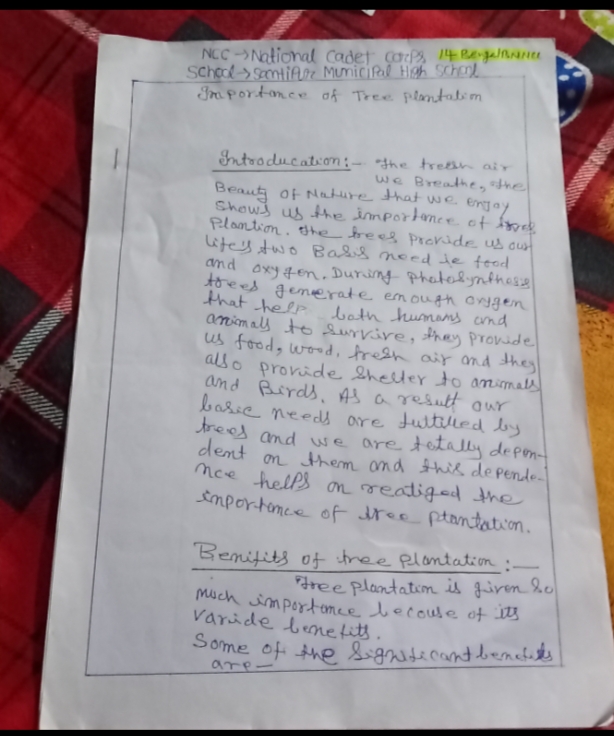 NCC → National Cadet Corps 14 Bengal BN NCC
School → Santipur Municipal High School
Importance of Tree Plantation
Introducation:- The fresh air
we Breathe, the
Beauty of Nature that we enjoy
shows us the importance of trees
Plantion. the trees provide us our
life's two Basis need ie food
and oxygen. During photosynthesis
trees generate enough oxygen
that help both humans and
animals to survive, they provide
us food, wood, fresh air and they
also provide Shelter to animals
and Birds. As a result our
basic needs are fulfilled by
trees and we are totally depen-
dent on them and this depende-
nce helps on reatiged the
inportence of tree ptantation.
Benifits of tree plantation :-
Tree plantation is given so
much importance becouse of its
varide benefits.
Some of the Significant benefits
are-